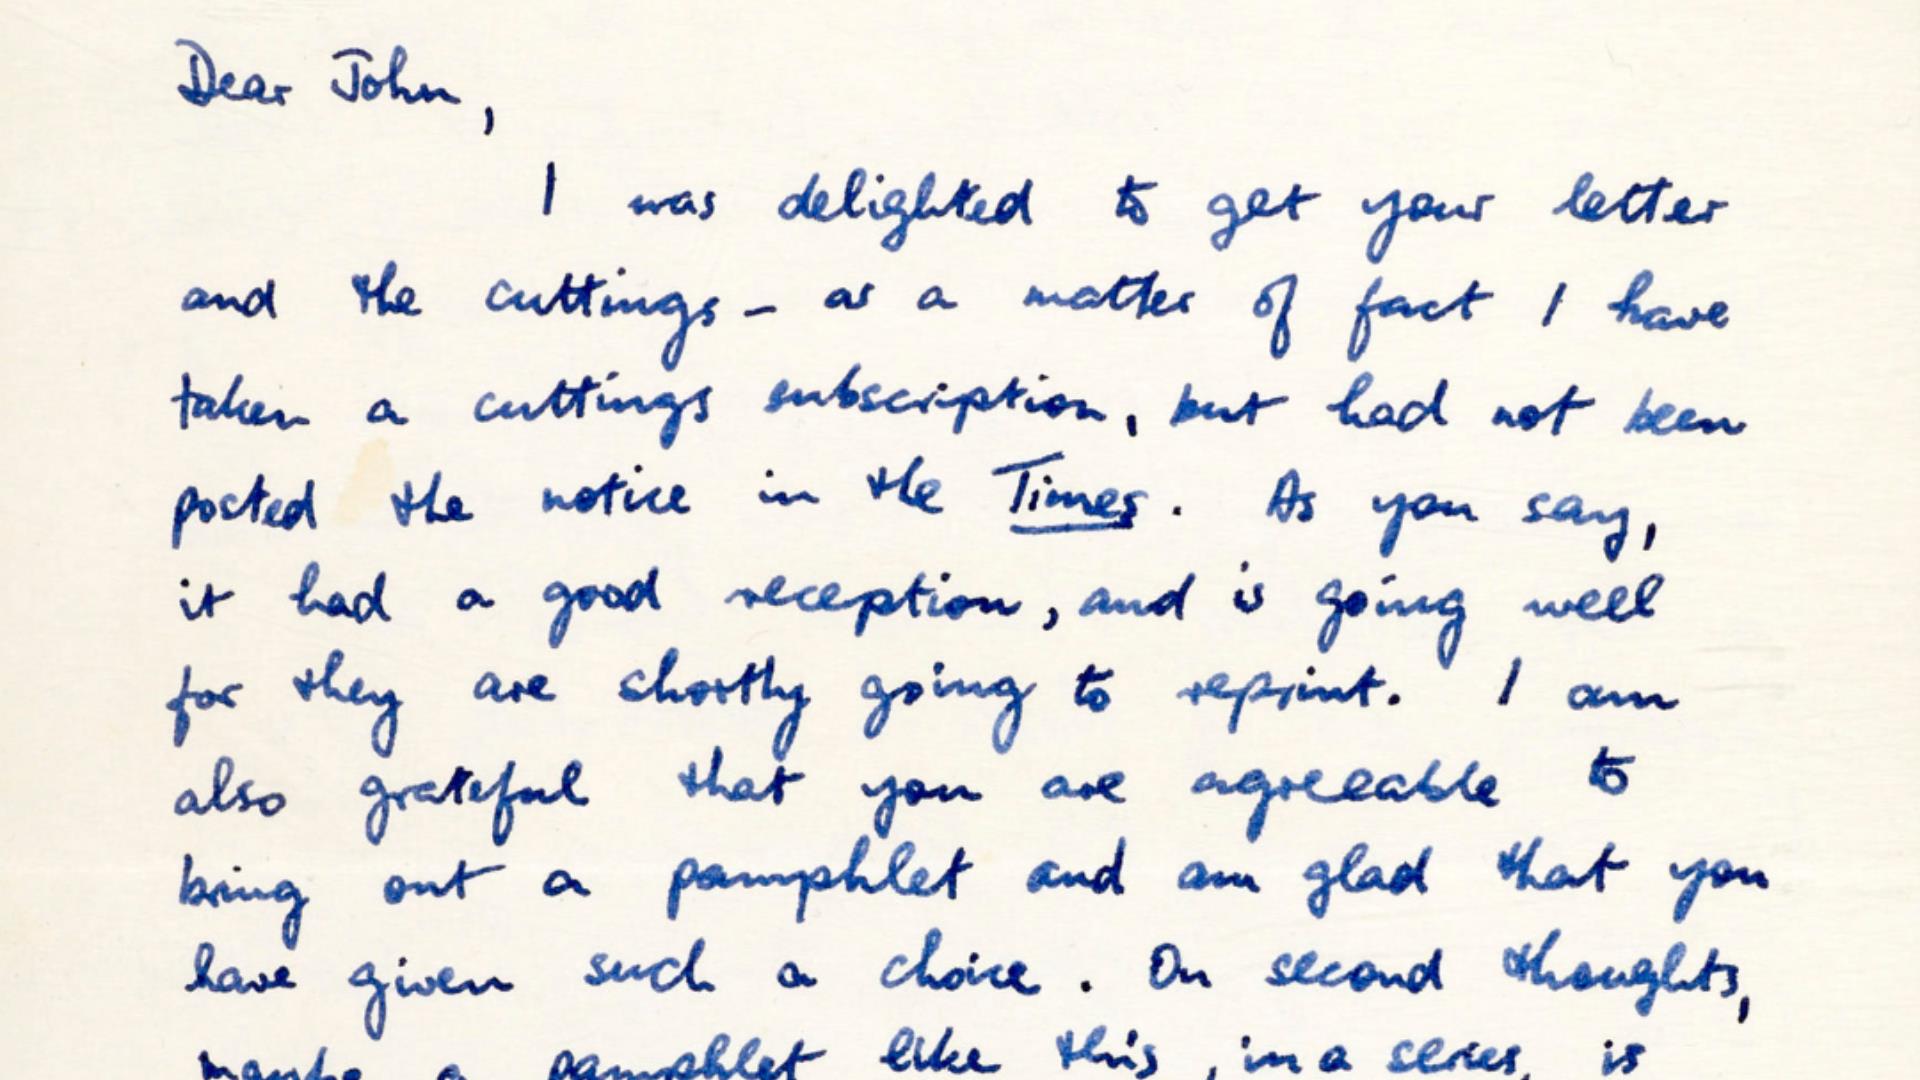 Dear John,
I was delighted to get your letter
and the cuttings – as a matter of fact I have
taken a cuttings subscription, but had not been
posted the notice in the Times. As you say,
it had a good reception, and is going well
for they are shortly going to reprint. I am
also grateful that you are agreeable to
bring out a pamphlet and am glad that you
have given such a choice. On second thoughts,
maybe a pamphlet like this, in a series, is